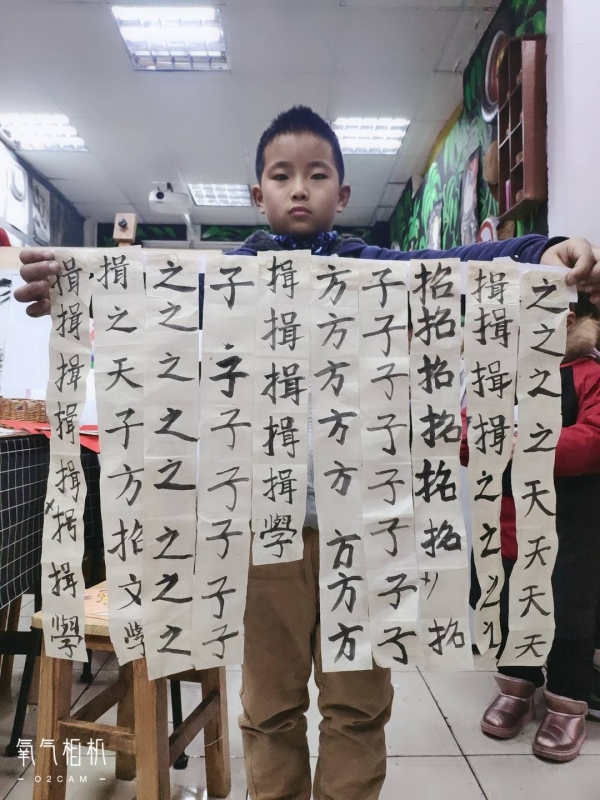 之之之之天天天天
揖揖揖揖之之之之
招招招招招招招
子子子子子子子子
方方方方方方方方
揖揖揖揖揖學
子子子子子子子
之之之之之之之之
揖之天子方招文學
揖揖揖揖揖揖學
氧气相机
O2CAM